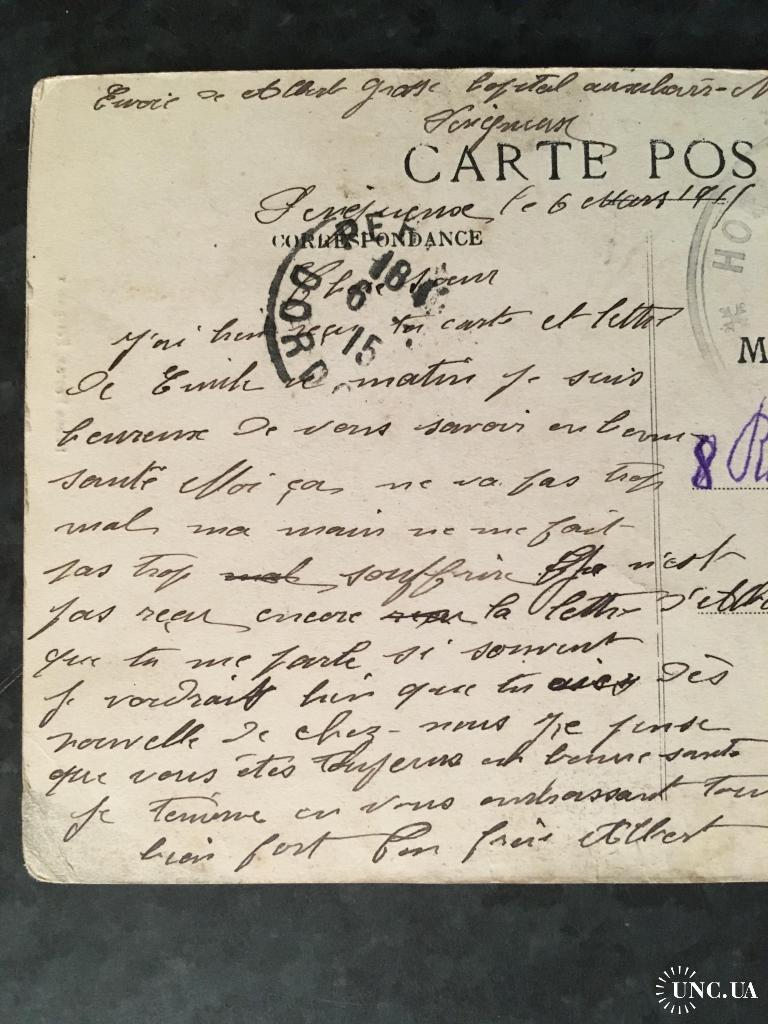 Envoie de Albert Grasse hopital auxiliaire N
Perigueux
CARTE POS
Perigueux le 6 Mars 1915
CORRESPONDANCE
PER
DORD
18
6
15
HO
Chère Sœur
J'ai bien reçu ta carte et lettre
de Emile ce matin je suis
heureux de vous savoir en bonne
santé Moi ça ne va pas trop
mal ma main ne me fait
pas trop mal souffrire n'est
pas reçu encore la lettre d'Alb
que tu me parle si souvent
je voudrait bien que tu aies dès
nouvelle de chez-nous je pense
que vous êtes toujours en bonne santé
Je termine en vous embrassant tous
bien fort Ton frère Albert
M
8 R
UNC.UA